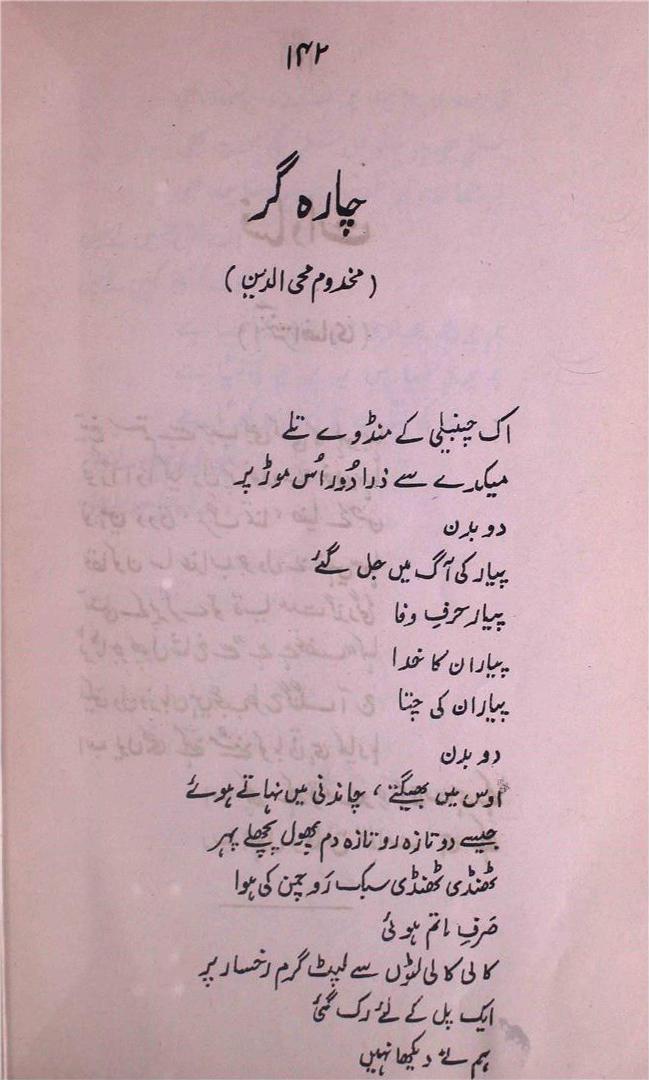 ۱۴۲
چارہ گر
(مخدوم محی الدین)
اک چنبیلی کے منڈوے تلے
میکدے سے ذرا دُور اُس موڑ پر
دو بدن
پیار کی آگ میں جل گئے
پیار حرفِ وفا
پیار ان کا خدا
پیار ان کی چتا
دو بدن
اوس میں بھیگتے، چاندنی میں نہاتے ہوئے
جیسے دو تازہ رو تازہ دم پھول پچھلے پہر
ٹھنڈی ٹھنڈی سبک رَو چمن کی ہوا
صَرفِ ماتم ہوئی
کالی کالی لٹوں سے لپٹ گرم رخسار پر
ایک پل کے لئے رک گئی
ہم نے دیکھا نہیں